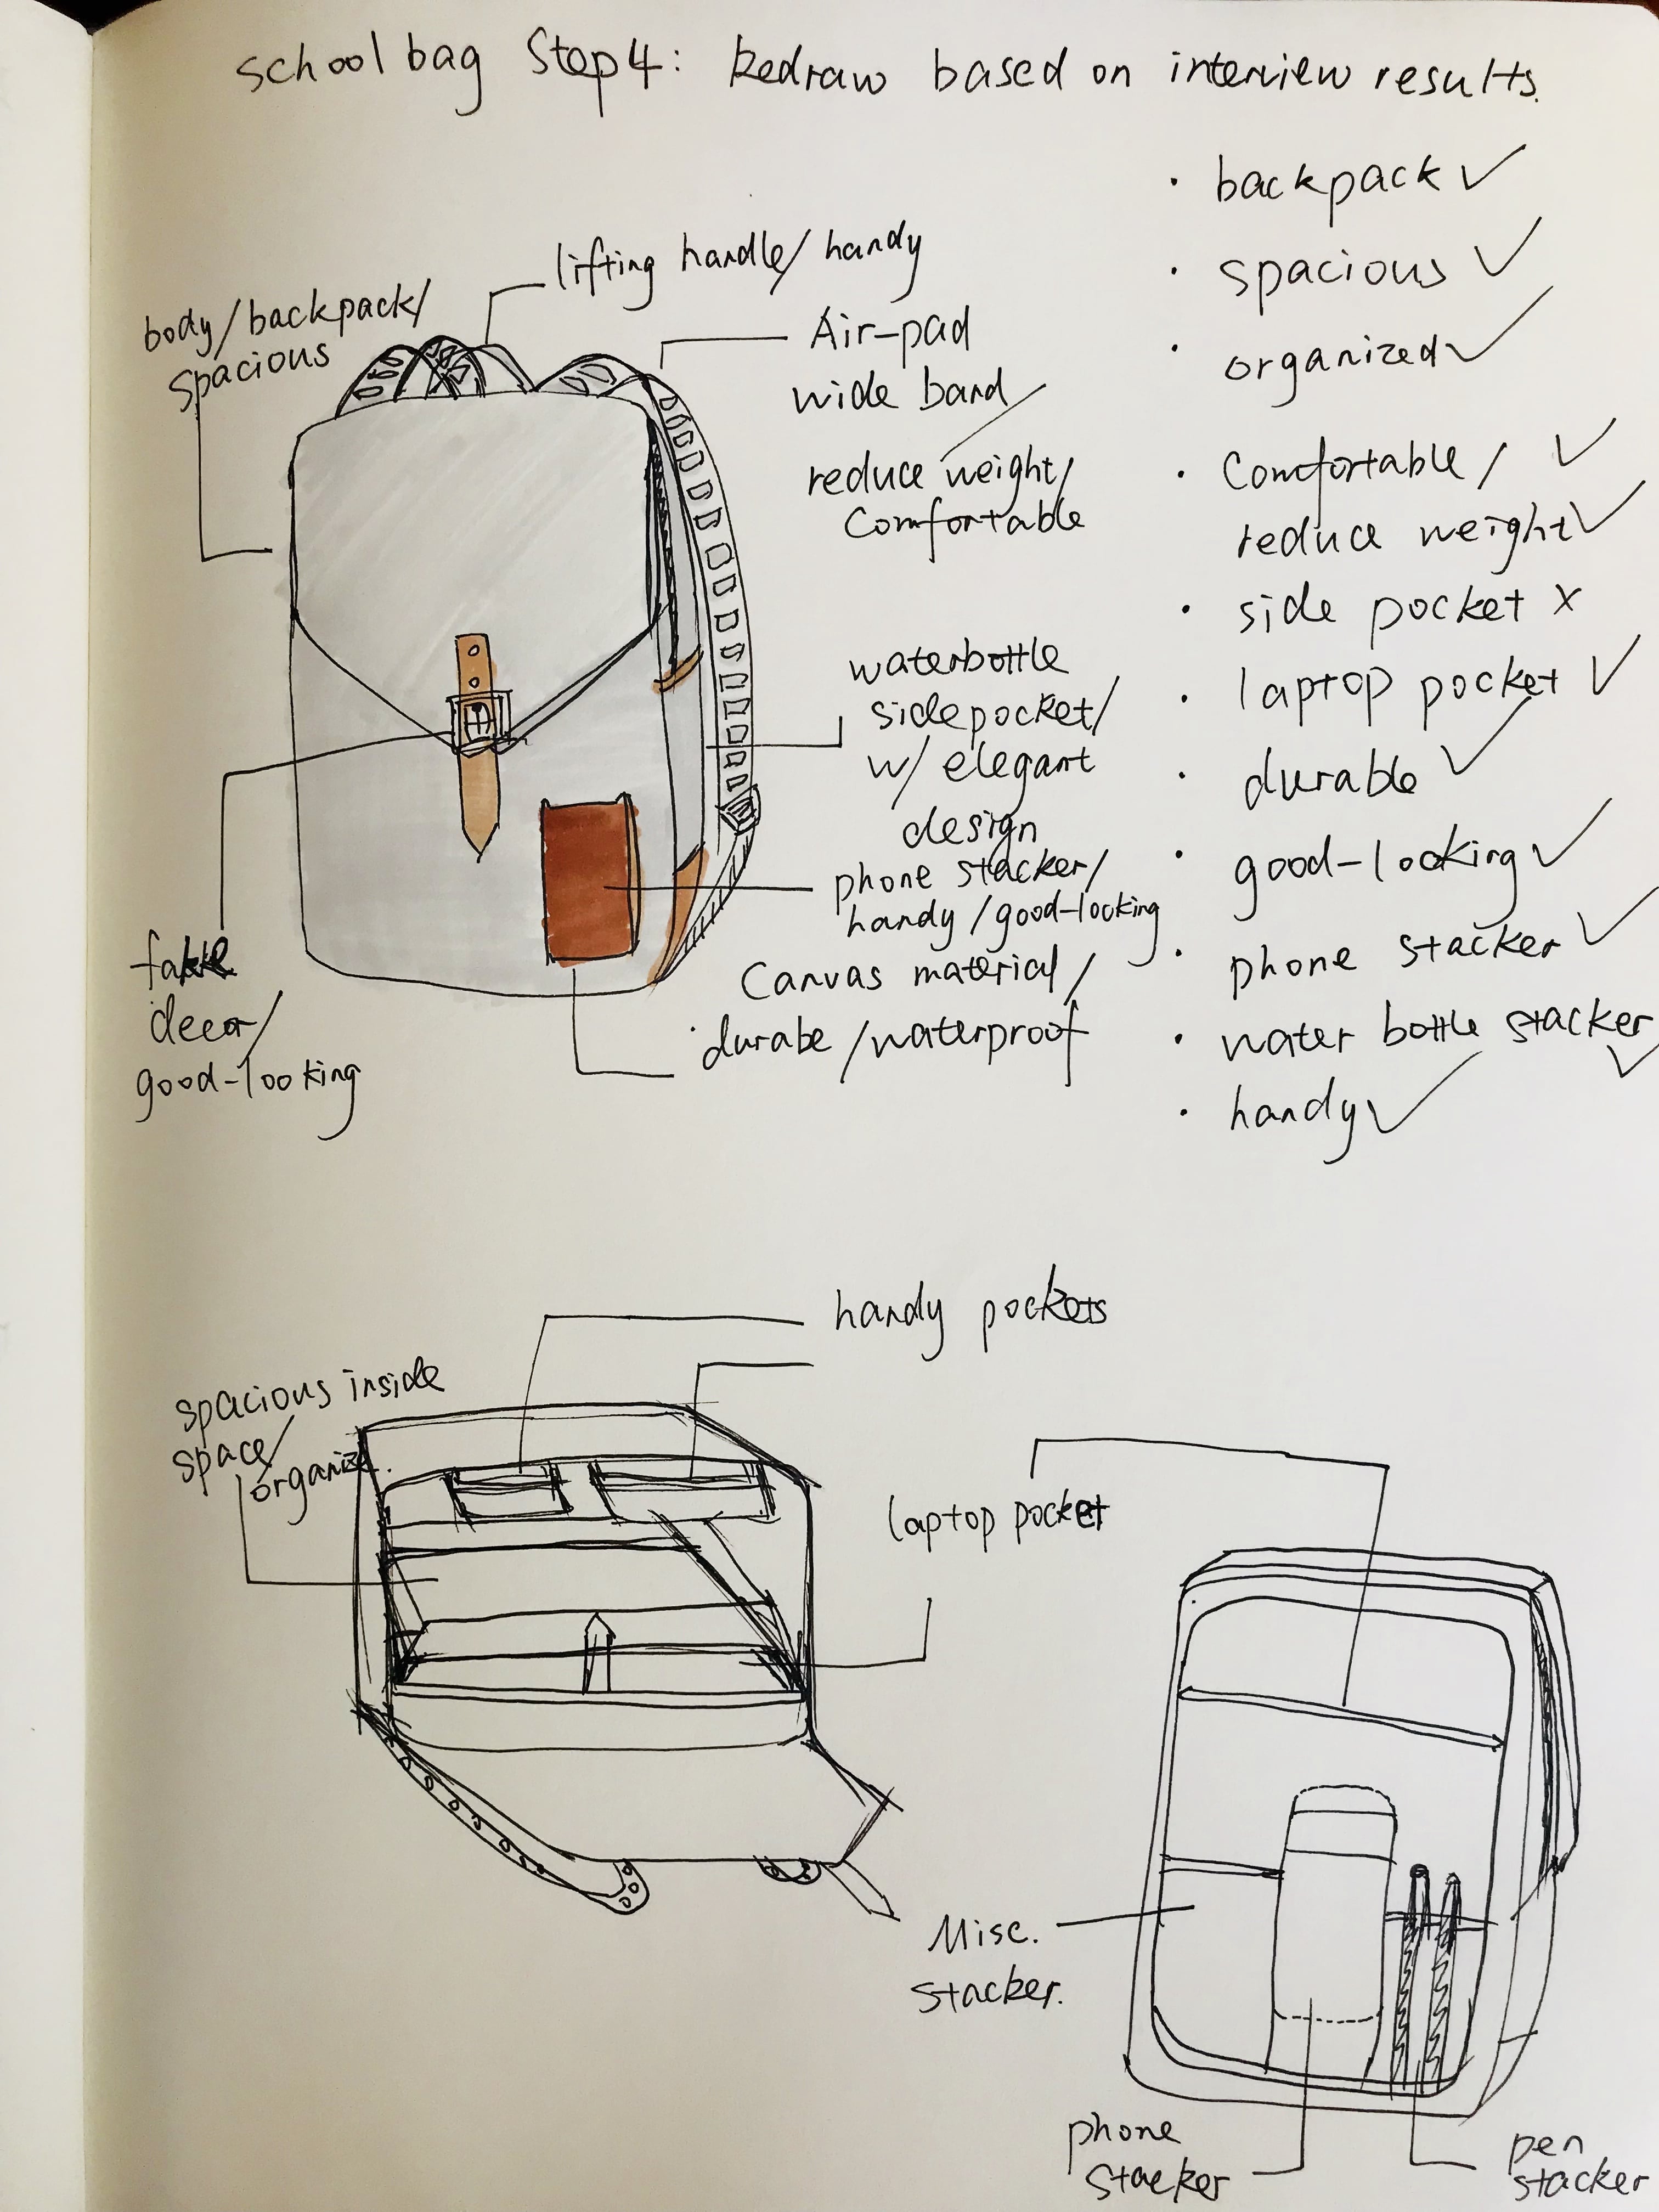 school bag Step 4: Redraw based on interview results.
lifting handle/ handy
body/backpack/
spacious
Air-pad
wide band/
reduce weight/
comfortable
waterbottle
sidepocket/
w/ elegant
design
phone stacker/
handy/good-looking
Canvas material/
durabe/waterproof
fake
decor/
good-looking
· backpack ✓
· spacious ✓
· organized ✓
· Comfortable/ ✓
reduce weight ✓
· side pocket x
· laptop pocket ✓
· durable ✓
· good-looking ✓
· phone stacker ✓
· water bottle stacker ✓
· handy ✓
handy pockets
spacious inside
space/
organize.
laptop pocket
Misc.
stacker.
phone
stacker
pen
stacker